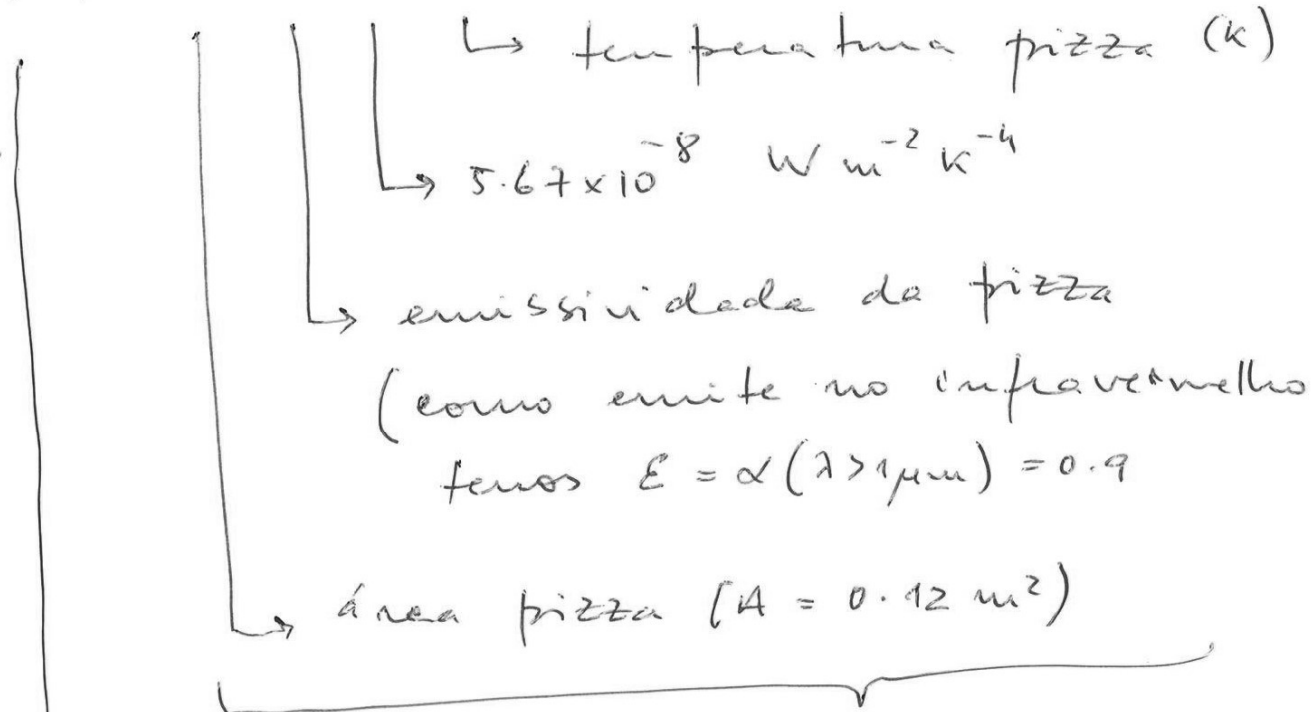 ↳ temperatura pizza (K)
↳ 5.67×10⁻⁸ W m⁻² K⁻⁴
↳ emissividade da pizza
(como emite no infravermelho
temos ε = α(λ>1μm) = 0.9
↳ área pizza (A = 0.12 m²)